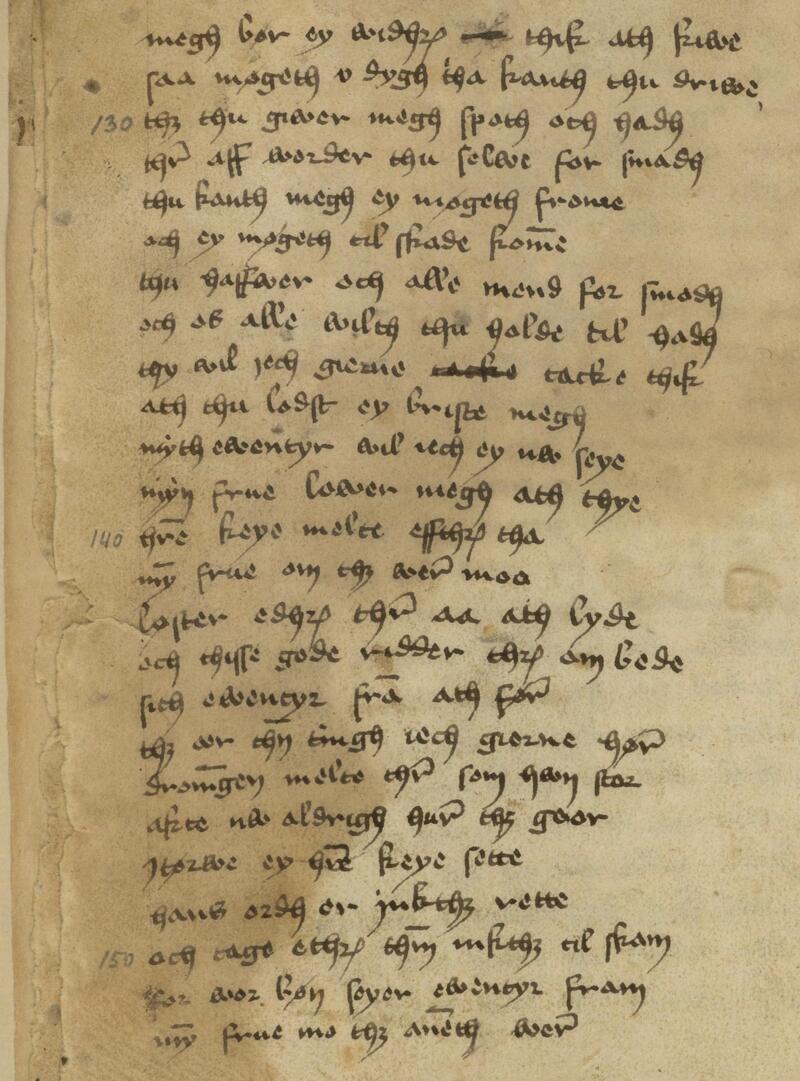 megh bør ey widhr thik ath kiwe
saa møgeth v dygh tha kanth thu driwe
130 thz thu giwer megh spoth och hadh
thr aff worder thu selwe for smadh
thu kanth megh ey møgeth frome
och ey møgeth til skade kom̄e
thu haffwer och alle mend for smadh
och os alle wilth thu holde til hadh
thy wil jech gierne tacke thik
ath thu lodst ey briste megh
myth ewentyr wil iech ey nw seye
myn frue lower megh ath thye
140 hr̄e keye melte effthr tha
my̅ frue om thz wer̄ moa
løster edhr thr̄ aa ath lyde
och thisse gode ridder thr om bede
sith ewentyr frā ath før̄
thz ær thn̄ tingh iech gierne hør̄
drom̄gen melte thr̄ som hwn stor
akte nw aldrigh hur̄ thz goor
J tørwe ey hr̄e keye sette
hans ordh er jnkthz rette
150 och tage ethr thm̄ inkthz til skam
for wor bøn seyer ewentyr fram
my̅ frue mo thz an̄eth wer̄